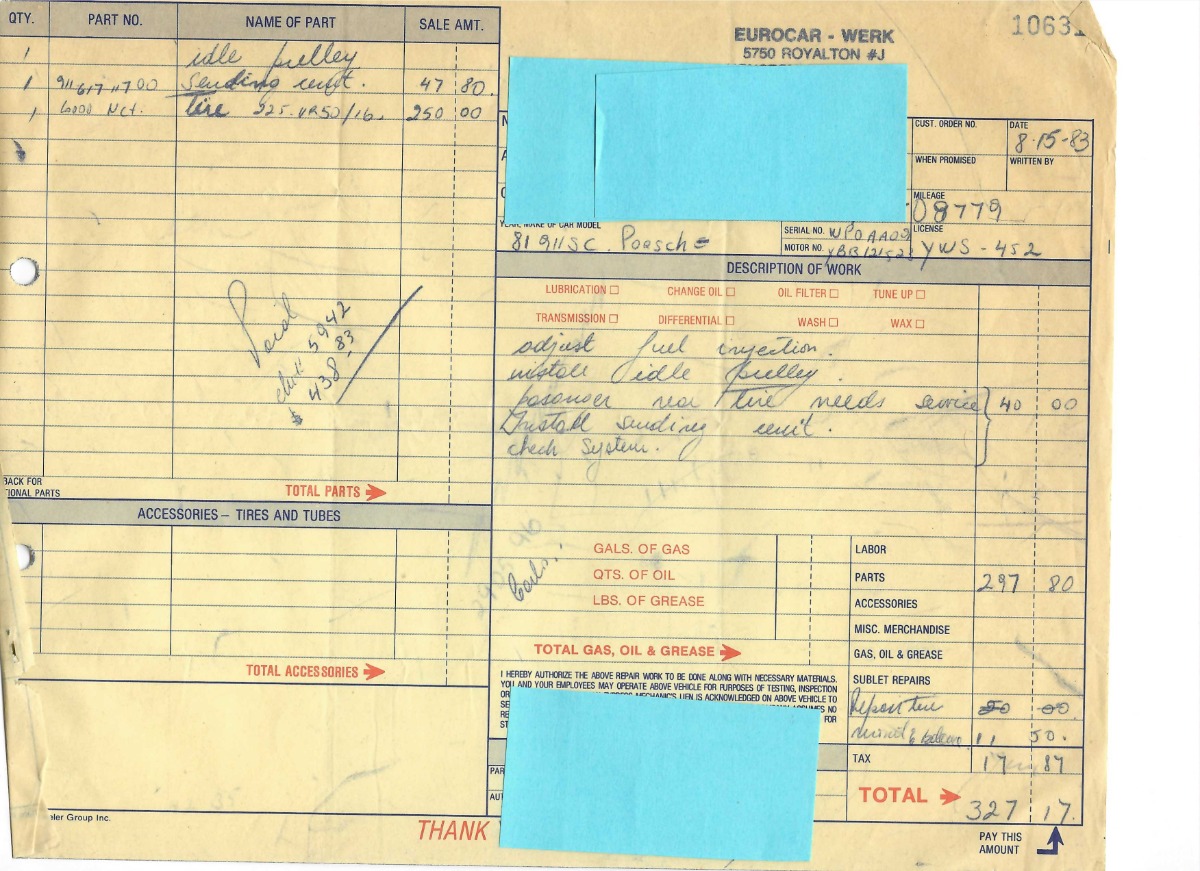 EUROCAR - WERK
5750 ROYALTON #J
10631
QTY. PART NO. NAME OF PART SALE AMT.
1 idle pulley
1 911 617 117 00 Sending unit. 47 80.
1 6000 Net. tire 225.VR50/16. 250 00
CUST. ORDER NO.
DATE
8-15-83
WHEN PROMISED
WRITTEN BY
MILEAGE
08779
YEAR, MAKE OF CAR MODEL
81 911SC. Poasche
SERIAL NO. WPOAA09
MOTOR NO.
LICENSE
YWS-452
DESCRIPTION OF WORK
LUBRICATION CHANGE OIL OIL FILTER TUNE UP
TRANSMISSION DIFFERENTIAL WASH WAX
adjust fuel injection.
install idle pulley.
pasanger rear tire needs service 40 00
Install sending unit.
check system.
Paid
5942
$ 438.83
BACK FOR
IONAL PARTS
TOTAL PARTS
ACCESSORIES – TIRES AND TUBES
TOTAL ACCESSORIES
GALS. OF GAS
QTS. OF OIL
LBS. OF GREASE
TOTAL GAS, OIL & GREASE
I HEREBY AUTHORIZE THE ABOVE REPAIR WORK TO BE DONE ALONG WITH NECESSARY MATERIALS.
YOU AND YOUR EMPLOYEES MAY OPERATE ABOVE VEHICLE FOR PURPOSES OF TESTING, INSPECTION
LIEN IS ACKNOWLEDGED ON ABOVE VEHICLE TO
LABOR
PARTS 297 80
ACCESSORIES
MISC. MERCHANDISE
GAS, OIL & GREASE
SUBLET REPAIRS
11 50.
TAX 17 87
TOTAL 327 17.
PAY THIS
AMOUNT
eler Group Inc.
THANK